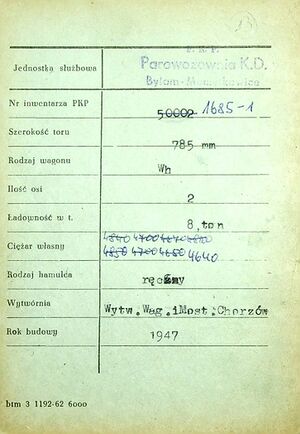 P. K. P.
Jednostka służbowa Parowozownia K.D.
Bytom-
Nr inwentarza PKP 50002 1685-1
Szerokość toru 785 mm
Rodzaj wagonu Wh
Ilość osi 2
Ładowność w t. 8, ton
4840 4700 4670 4810
Ciężar własny 4850 4700 4650 4640
Rodzaj hamulca ręczny
Wytwórnia Wytw.Wag.iMost.Chorzów
Rok budowy 1947
btm 3 1192-62 6000